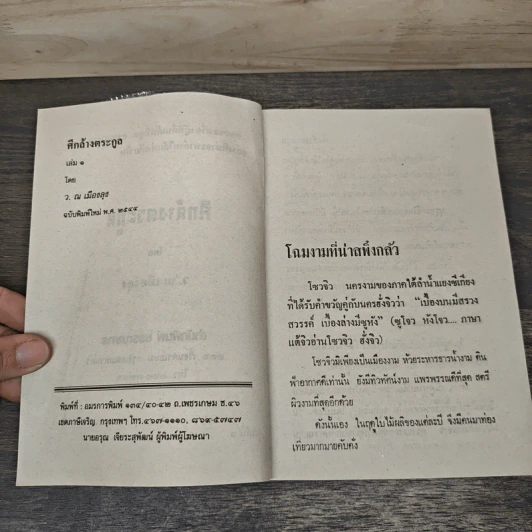 ศึกล้างตระกูล
เล่ม ๑
โดย
ว. ณ เมืองลุง
ฉบับพิมพ์ใหม่ พ.ศ. ๒๕๔๔
พิมพ์ที่ : อมรการพิมพ์ ๑๓๔/๔๐-๔๒ ถ.เพชรเกษม ซ.๔๖
เขตภาษีเจริญ กรุงเทพฯ โทร.๔๖๗-๑๑๑๐, ๘๖๙-๕๗๔๗
นายอรุณ เจียระสุพัฒน์ ผู้พิมพ์ผู้โฆษณา
โฉมงามที่น่าสพึงกลัว
โซวจิว นครงามของภาคใต้ลำน้ำแยงซีเกียง
ที่ได้รับคำขวัญคู่กับนครฮั่งจิวว่า "เบื้องบนมีสรวง
สวรรค์ เบื้องล่างมีซูหัง" (ซูโจว หังโจว.... ภาษา
แต้จิวอ่านโซวจิว ฮั่งจิว)
โซวจิวมิเพียงเป็นเมืองงาม ห้วยระหารธารน้ำงาม ดิน
ฟ้าอากาศดีเท่านั้น ยังมีทิวทัศน์งาม แพรพรรณดีที่สุด สตรี
ผิวงามที่สุดอีกด้วย
ดังนั้นเอง ในฤดูใบไม้ผลิของแต่ละปี จึงมีคนมาท่อง
เที่ยวมากมายคับคั่ง